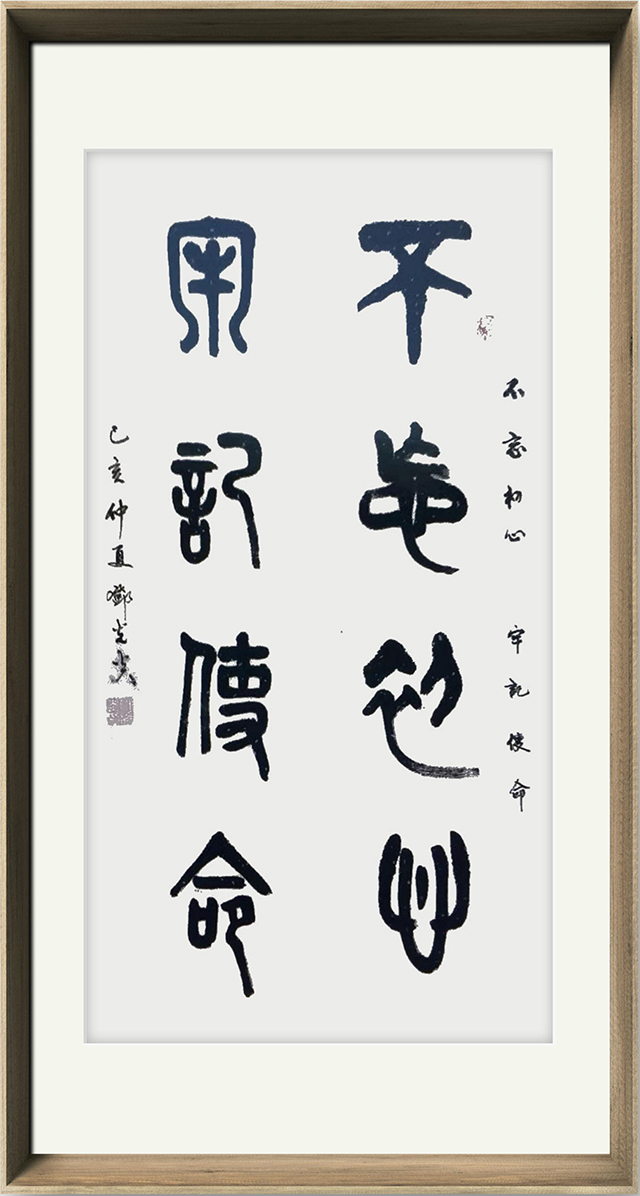 不忘初心 牢記使命
不忘初心
牢記使命
己亥仲夏鄧光